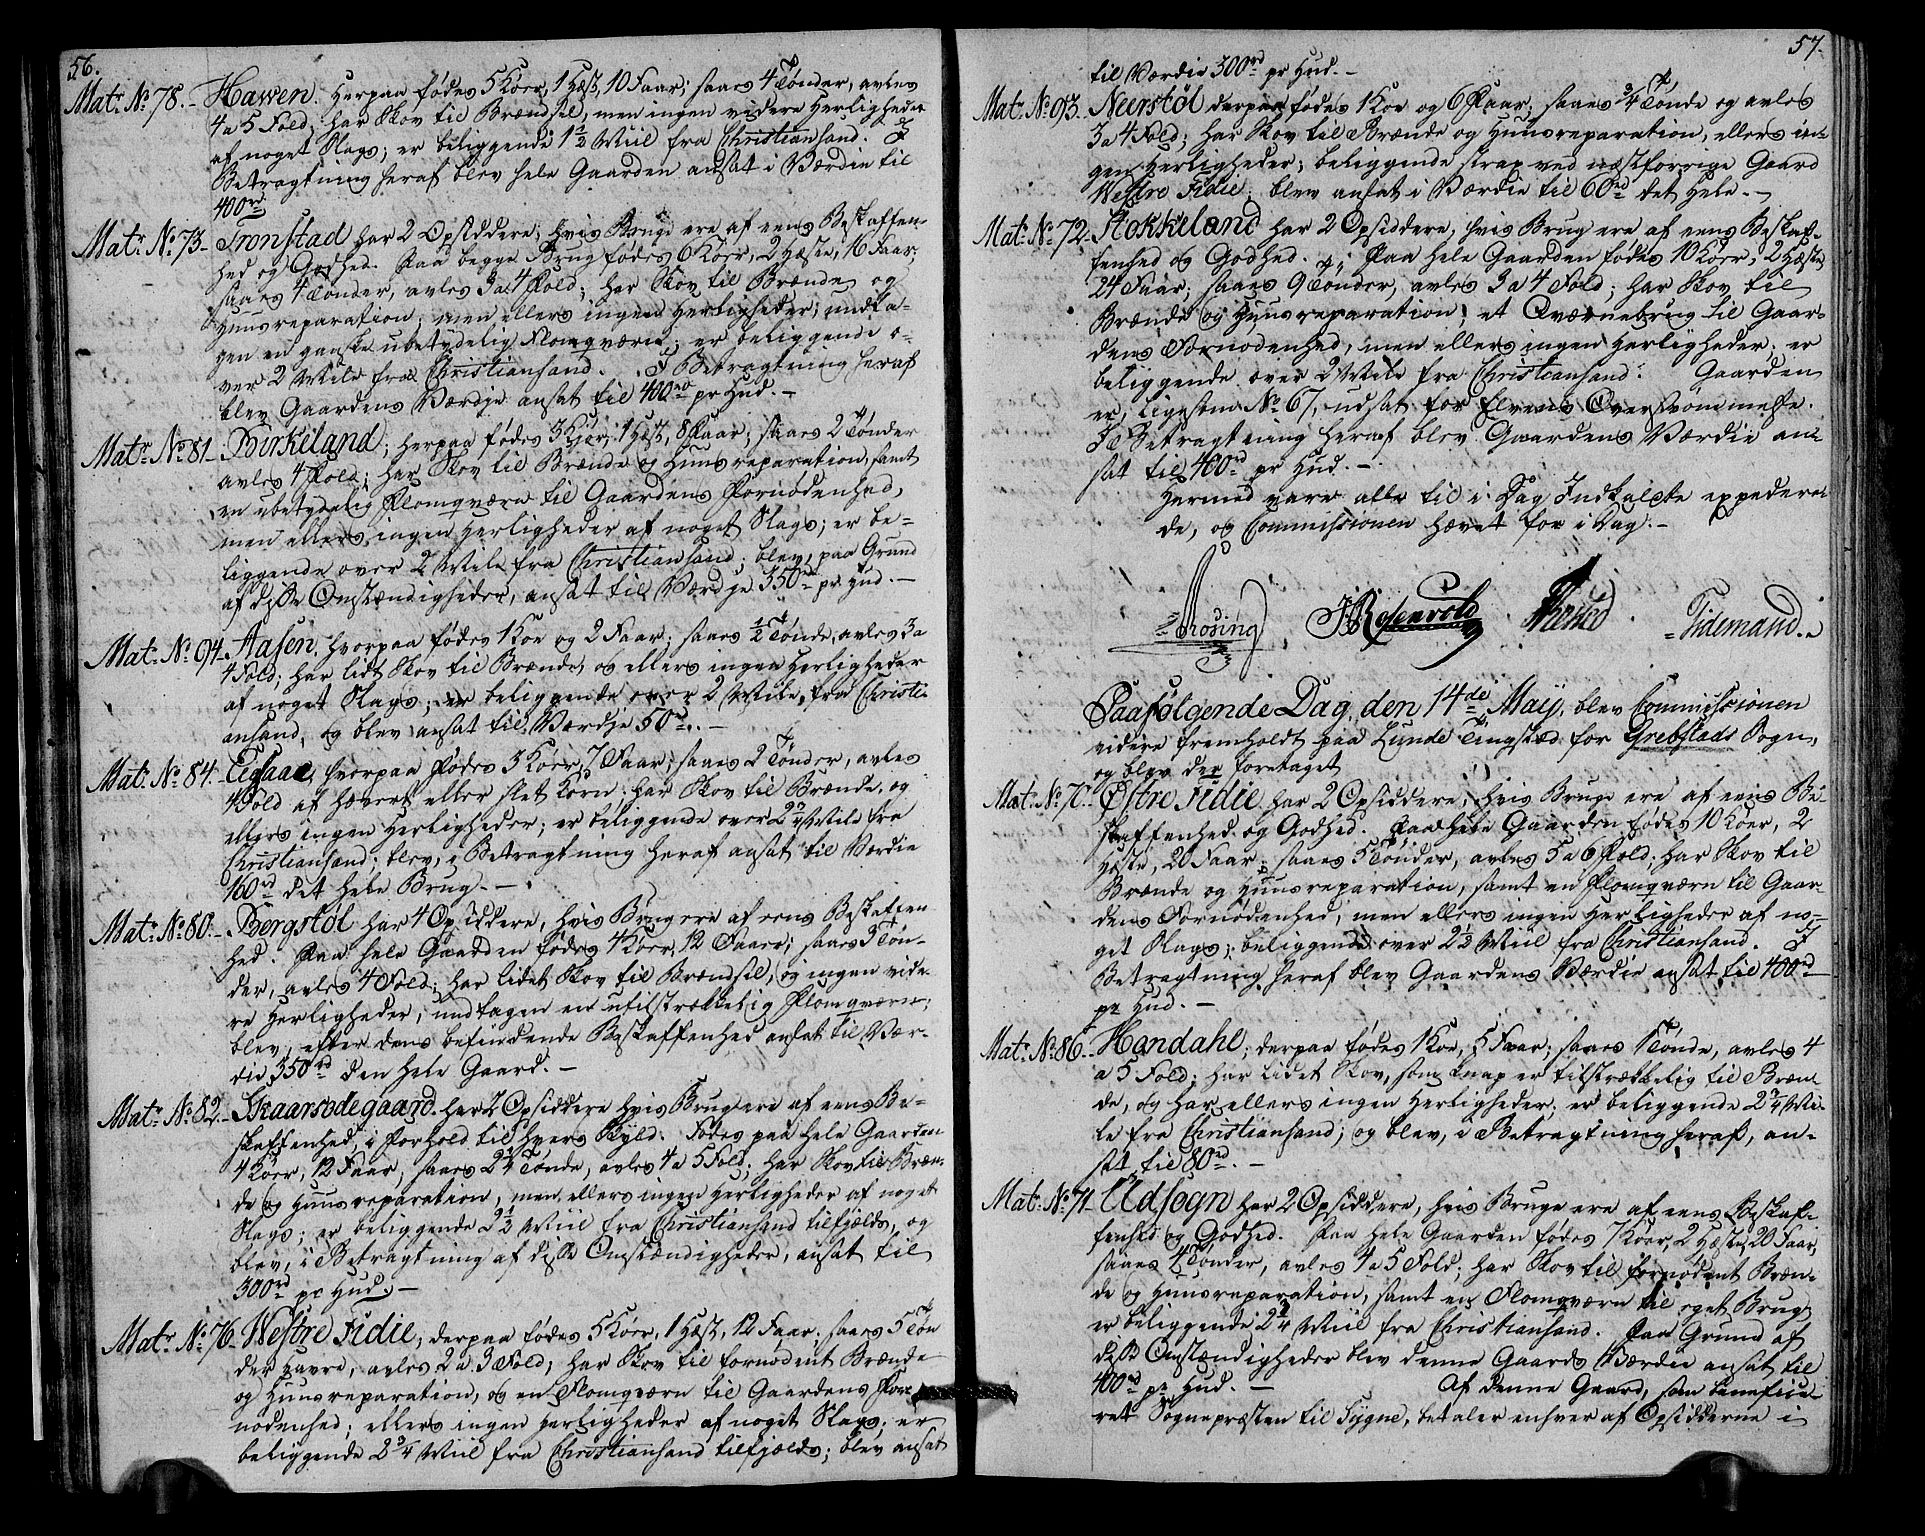 56.
Mat: No 78. Hawen. Herpaa fødes 5 Kөer, 1 Hæst, 10 Faar; saaes 4 Tønder, avles
4 a 5 Fold; har Skov til Brændsel, men ingen videre Herligheder
af noget Slags; er beliggende 1 1/2 Miil fra Christiansand. I
Betragtning heraf blev hele Gaarden ansat i Værdie til
400rd
Mat: No 73. Tronstad har 2 Opsiddere, hvis Bruge ere af eens Beskaffen-
hed og Godhed. Paa begge Brug fødes 6 Köer, 2 Hæste, 16 Faar;
saaes 4 Tønder, avles 3 a 4 Fold; har Skov til Brænde og
Huusreparation, men ellers ingen Herligheder, undta-
gen en ganske ubetydelig Flomqværn; er beliggende o-
ver 2 Mile fra Christiansand. I Betragtning heraf
blev Gaardens Værdie ansat til 400rd pr Hud. -
Mat: No 81 - Birkeland; herpaa fødes 3 Kjør, 1 Hæst, 8 Faar; saaes 2 Tønder
avles 4 Fold; har Skov til Brænde og Huusreparation, samt
en ubetydelig Flomqværn til Gaardens Fornødenhed,
men ellers ingen Herligheder af noget Slags; er be-
liggende over 2 Mile fra Christiansand; blev, paa Grund
af disse Omstændigheder, ansat til Værdje 350rd pr Hud. -
Mat: No 94 - Aasen, hvorpaa fødes 1 Koe og 2 Faar; saaes 1/2 Tønde, avles 3 a
4 Fold; har lidt Skov til Brænde, og ellers ingen Herligheder
af noget Slags; er beliggende over 2 Mile fra Christi-
ansand, og blev ansat til Værdje 50rd. -
Mat: No 84. - Eegaae, hvorpaa Fødes 3 Köer, 7 Faar; saaes 2 Tønder, avles
4 Fold af Havert eller slet Korn; har Skov til Brænde, og
ellers ingen Herligheder; er beliggende over 2 3/4 Mile fra
Christiansand; blev, i Betragtning heraf ansat til Værdie
160rd det hele Brug. -
Mat: No 80. - Bergstøl har 4 Opsiddere, hvis Brug ere af eens Beskaffen
hed. Paa hele Gaarden fødes 4 Köer, 12 Faar; saaes 3 Tøn-
der, avles 4 Fold; har lidet Skov til Brændsel, og ingen vide-
re Herligheder, undtagen en utilstrækkelig Flomqværn;
blev, efter dens befindende Beskaffenhed ansat til Vær-
die 350rd den hele Gaard. -
Mat: No 82. - Skaarsodegaard har 2 Opsiddere hvis Brug ere af eens Be-
skaffenhed, i Forhold til hvers Skyld. Fødes paa hele Gaarden
4 Köer, 12 Faar, saaes 2 1/4 Tønde, avles 4 a 5 Fold; har Skov til Bræn-
de og Huusreparation, men ellers ingen Herligheder af noget
Slags; er beliggende 2 1/2 Miil fra Christiansand tilfjelds, og
blev, i Betragtning af disse Omstændigheder, ansat til
300rd pr Hud. -
Mat: No 76 - Westre Fidie; derpaa fødes 5 Köer, 1 Hæst, 12 Faar; saaes 5 Tøn
der Havre, avles 2 a 3 Fold; har Skov til fornødent Brænde
og Huusreparation, og en Flomqværn til Gaardens For-
nødenhed; ellers ingen Herligheder af noget Slags; er
beliggende 2 3/4 Miil fra Christiansand tilfjelds; blev ansat
57.
til Værdie 300rd pr Hud. -
Mat: No 93. Neerstøl derpaa fødes 1 Koe og 6 Faar; saaes 3/4 Tønde og avles
3 a 4 Fold; har Skov til Brænde og Huusreparation, ellers in-
gen Herligheder; beliggende strax ved næstforrige Gaard
Westre Fidie; blev ansat i Værdie til 60rd det hele. -
Mat: No 72 - Stokkeland har 2 Opsiddere, hvis Brug ere af eens Beskaf-
fenhed og Godhed. Paa hele Gaarden fødes 10 Köer, 2 Hæste,
24 Faar; saaes 9 Tønder, avles 3 a 4 Fold; har Skov til
Brænde og Huusreparation, et Qværnebrug til Gaar-
dens Fornødenhed, men ellers ingen Herligheder. er
beliggende over 2 Mile fra Christiansand. Gaarden
er, ligesom No 67, udsat for Elvens Oversvømmelse.
I Betragtning heraf blev Gaardens Værdie an-
sat til 400rd pr Hud. -
Hermed vare alle til i Dag Indkaldte expedere-
de, og Commissionen hævet for i Dag. -
Rosenvold Tidemand.
Paafølgende Dag, den 14de Maij, blev Commissionen
videre fremholdt paa Lunde Tingsted for Grebstads Sogn,
og blev der foretaget
Mat: No 70. - Østre Fidie har 2 Opsiddere, hvis Bruge ere af eens Be-
skaffenhed og Godhed. Paa hele Gaarden fødes 10 Köer, 2
Hæste, 20 Faar; saaes 5 Tønder, avles 5 a 6 Fold; har Skov til
Brænde og Huusreparation, samt en Flomqværn til Gaar-
dens Fornødenhed, men ellers ingen Herligheder af no-
get Slags; beliggende over 2 1/2 Miil fra Christiansand. I
Betragtning heraf blev Gaardens Værdie ansat til 400rd
pr Hud. -
Mat: No 86. - Handahl; derpaa fødes 1 Koe, 5 Faar; saaes 1 Tønde, avles 4
a 5 Fold; har lidet Skov, som knap er tilstrækkelig til Bræn-
de, og har ellers ingen Herligheder; er beliggende 2 3/4 Mi-
le fra Christiansand; og blev, i Betragtning heraf, an-
sat til 80rd. -
Mat: No 71 - Udsogn har 2 Opsiddere, hvis Bruge ere af eens Beskaf-
fenhed og Godhed. Paa hele Gaarden fødes 7 Köer, 2 Hæste, 20 Faar,
saaes 4 Tønder, avles 4 a 5 Fold; har Skov til fornødent Bræn-
de og Huusreparation, samt en Flomqværn til eget Brug;
er beliggende 2 1/4 Miil fra Christiansand. Paa Grund af
disse Omstændigheder blev denne Gaards Værdie ansat til
400rd pr Hud. - Af denne Gaard, som beneficie-
ret Sognepræsten til Sygne, betaler enhver af Opsidderne i